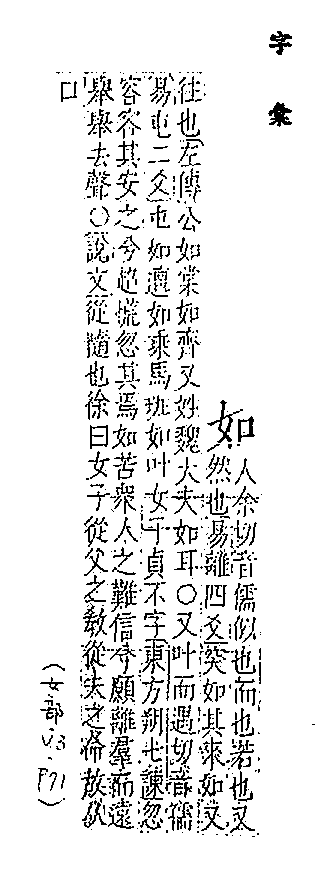 字彙
如
人余切音儒似也而也若也又
然也易離四爻突如其來如又
往也左傳公如棠如齊又姓魏大夫如耳○又叶而遇切音孺
易屯二爻屯如邅如乘馬班如叶女子貞不字東方朔七諫忽
容容其安之兮超慌忽其焉如苦衆人之難信兮願離羣而遠
舉舉去聲○說文從隨也徐曰女子從父之敎從夫之命故从
口
(女部·V3·P71)